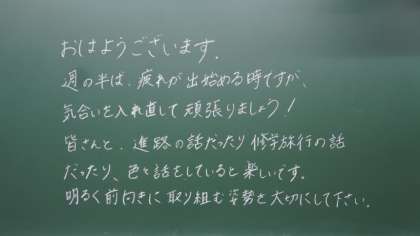 おはようございます。
週の半ば、疲れが出始める時ですが、
気合いを入れ直して頑張りましょう！
皆さんと、進路の話だったり修学旅行の話
だったり、色々話をしていると楽しいです。
明るく前向きに取り組む姿勢を大切にして下さい。